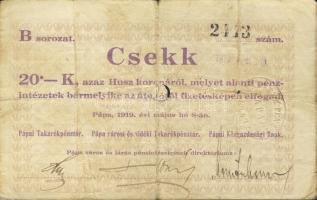 B sorozat. 2113 szám.
Csekk
20·— K, azaz Husz koronáról, melyet alanti pénz-
intézetek bármelyike az utolsó fizetésképen elfogad
Pápa, 1919. évi május hó 8-án.
Pápai Takarékpénztár. Pápa városi és vidéki Takarékpénztár. Pápai Közgazdasági Bank.
Pápa város és járás pénzintézeteinek direktóriuma: